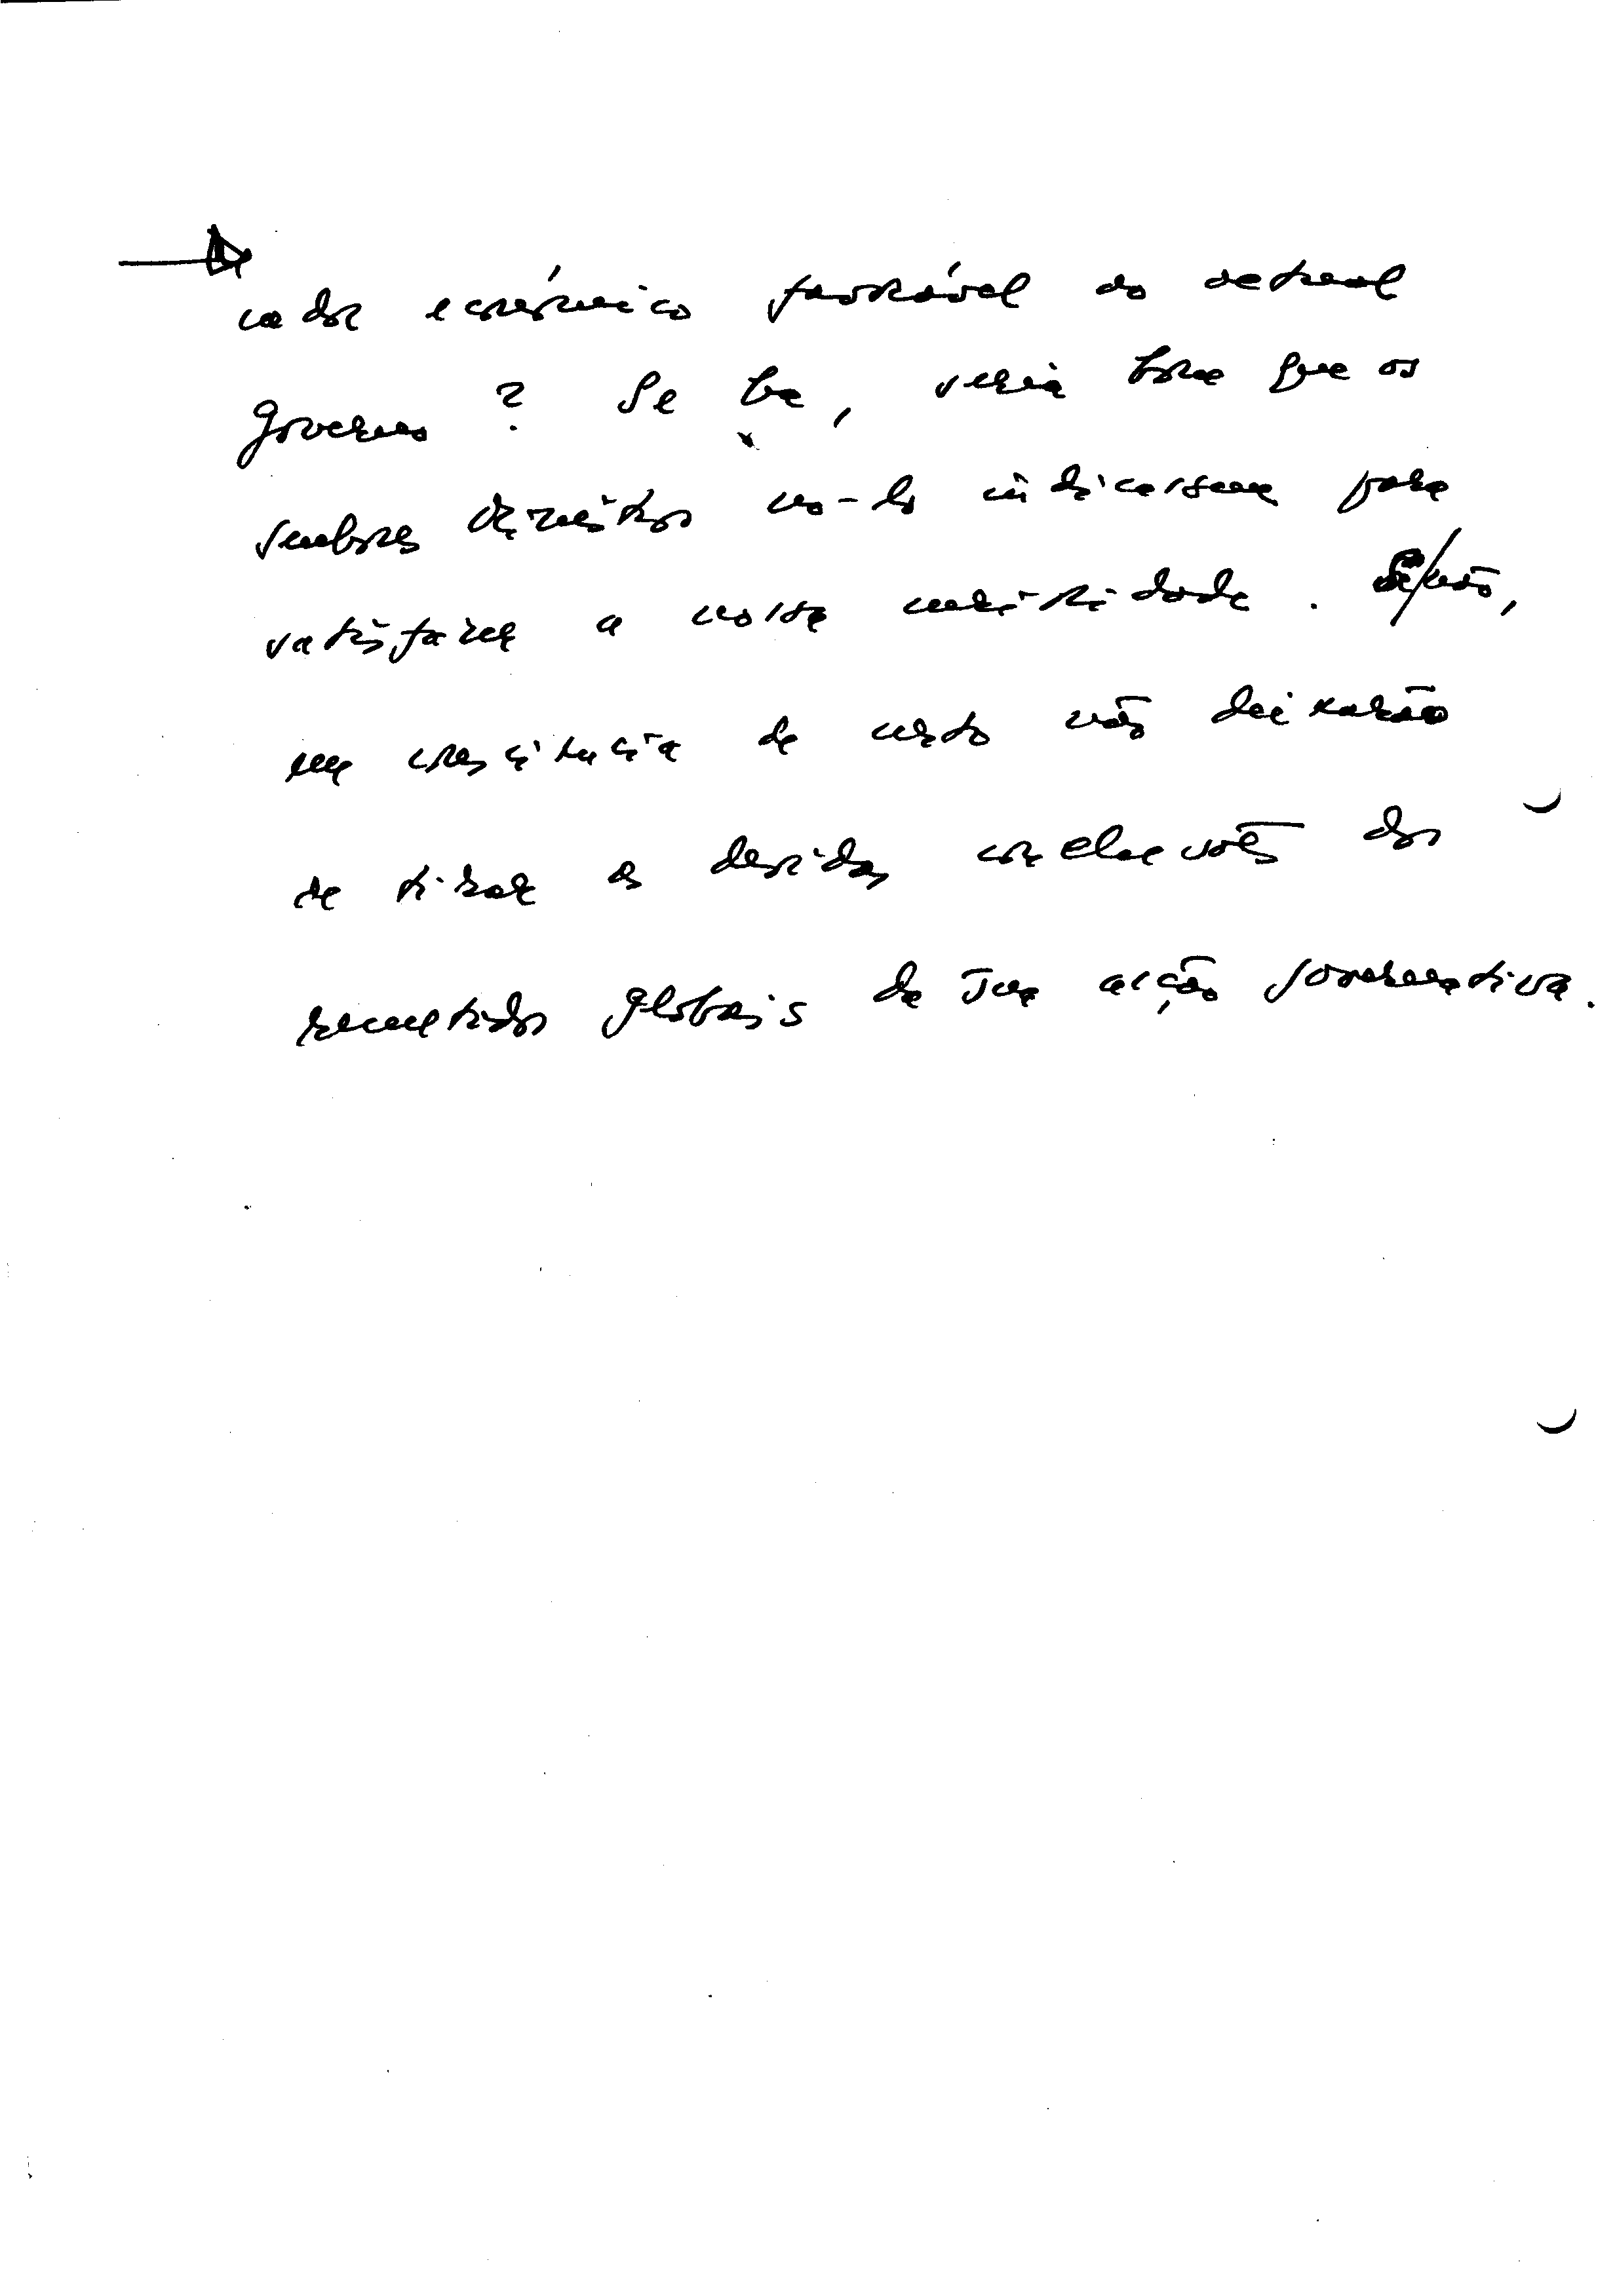 cador económico favorável do actual
Governo? Se há, seria bom que os
senhores Ministros no-lo indicassem para
satisfazer a nossa curiosidade. Se/não,
em consciência de certo não deixarão
de tirar as devidas conclusões dos
resultados globais da sua acção governativa.